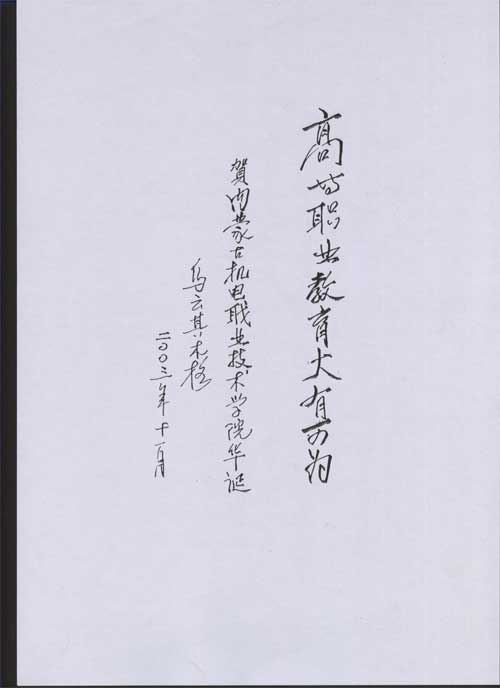 高等职业教育大有可为
贺内蒙古机电职业技术学院华诞
乌云其木格
二〇〇三年十一月